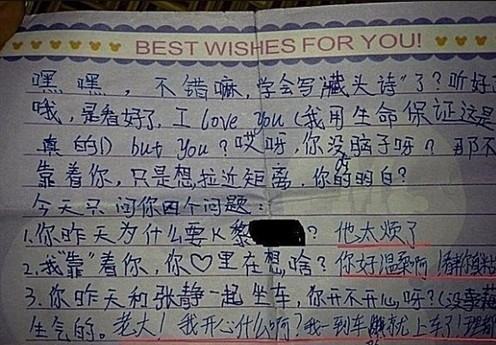 BEST WISHES FOR YOU!
嘿嘿，不错嘛，学会写"藏头诗"了？听好
哦，是看好了，I love you（我用生命保证这是
真的！）but you？哎呀，你没脑子呀？那不
靠着你，只是想拉近距离，你的明白？
今天只问你四个问题：
1.你昨天为什么要K黎？他太烦了
2.我"靠"着你，你♡里在想啥？你好温柔啊！
3.你昨天和张静一起坐车，你开不开心呀？（没
生气的。老大！我开心什么啊？我一到车就上车了！